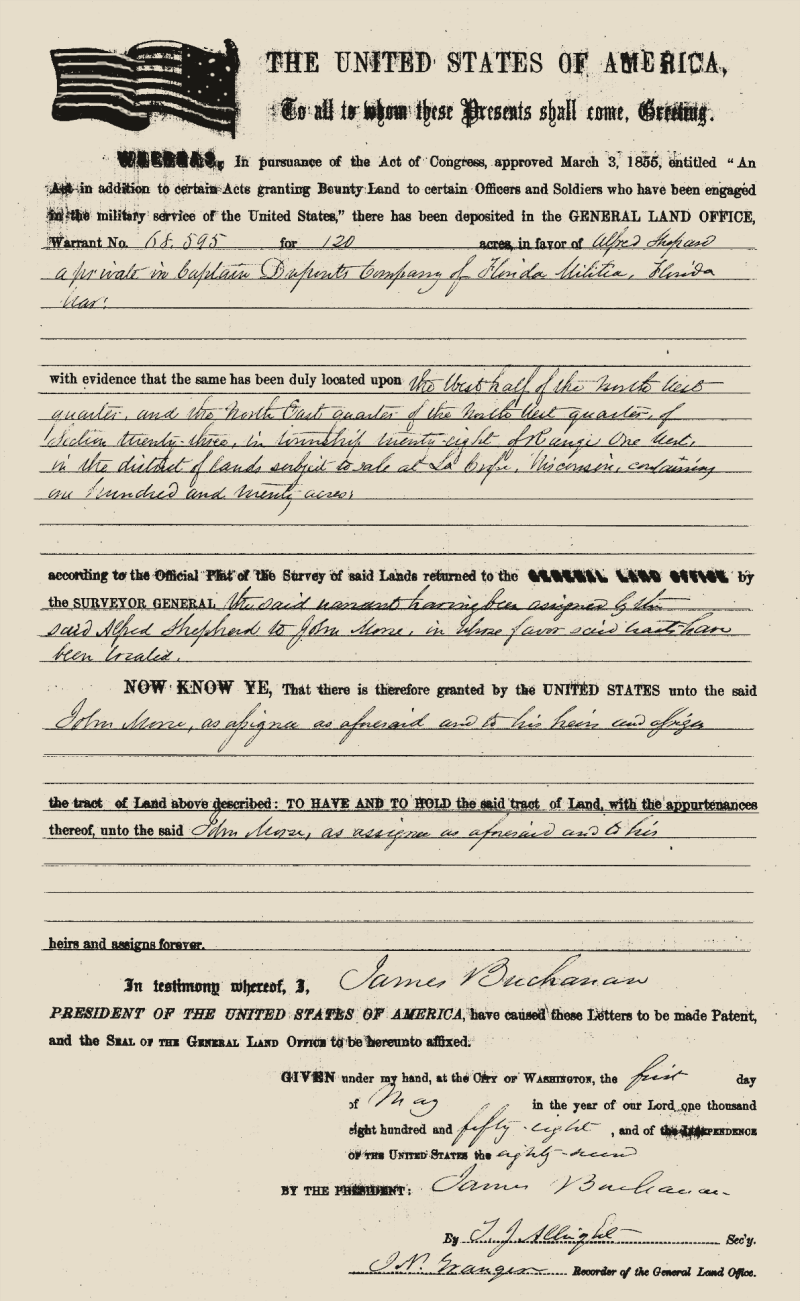 THE UNITED STATES OF AMERICA,
To all to whom these Presents shall come, Greeting.
WHEREAS, In pursuance of the Act of Congress, approved March 3, 1855, entitled "An
Act in addition to certain Acts granting Bounty Land to certain Officers and Soldiers who have been engaged
in the military service of the United States," there has been deposited in the GENERAL LAND OFFICE,
Warrant No. 68.595 for 120 acres, in favor of Alfred Shepard
a private in Captain Duponts Company of Florida Militia, Florida
War:
with evidence that the same has been duly located upon the West half of the North West
quarter, and the North East quarter of the North West quarter, of
Section twenty-three, in township twenty-eight of Range One West,
in the district of lands subject to sale at La Crosse, Wisconsin, containing
one hundred and twenty acres:
according to the Official Plat of the Survey of said Lands returned to the GENERAL LAND OFFICE by
the SURVEYOR GENERAL the said warrant having been assigned by the
said Alfred Shepherd to John Morse, in whose favor said tracts have
been located.
NOW KNOW YE, That there is therefore granted by the UNITED STATES unto the said
John Morse, as assignee as aforesaid and to his heirs and assigns
the tract of Land above described: TO HAVE AND TO HOLD the said tract of Land, with the appurtenances
thereof, unto the said John Morse, as assignee as aforesaid and to his
heirs and assigns forever.
In testimony whereof, I, James Buchanan
PRESIDENT OF THE UNITED STATES OF AMERICA, have caused these Letters to be made Patent,
and the SEAL OF THE GENERAL LAND OFFICE to be hereunto affixed.
GIVEN under my hand, at the CITY OF WASHINGTON, the first day
of May in the year of our Lord one thousand
eight hundred and fifty-eight, and of the INDEPENDENCE
OF THE UNITED STATES the eighty-second
BY THE PRESIDENT: James Buchanan
By T. J. Albright Sec'y.
J. N. Granger Recorder of the General Land Office.